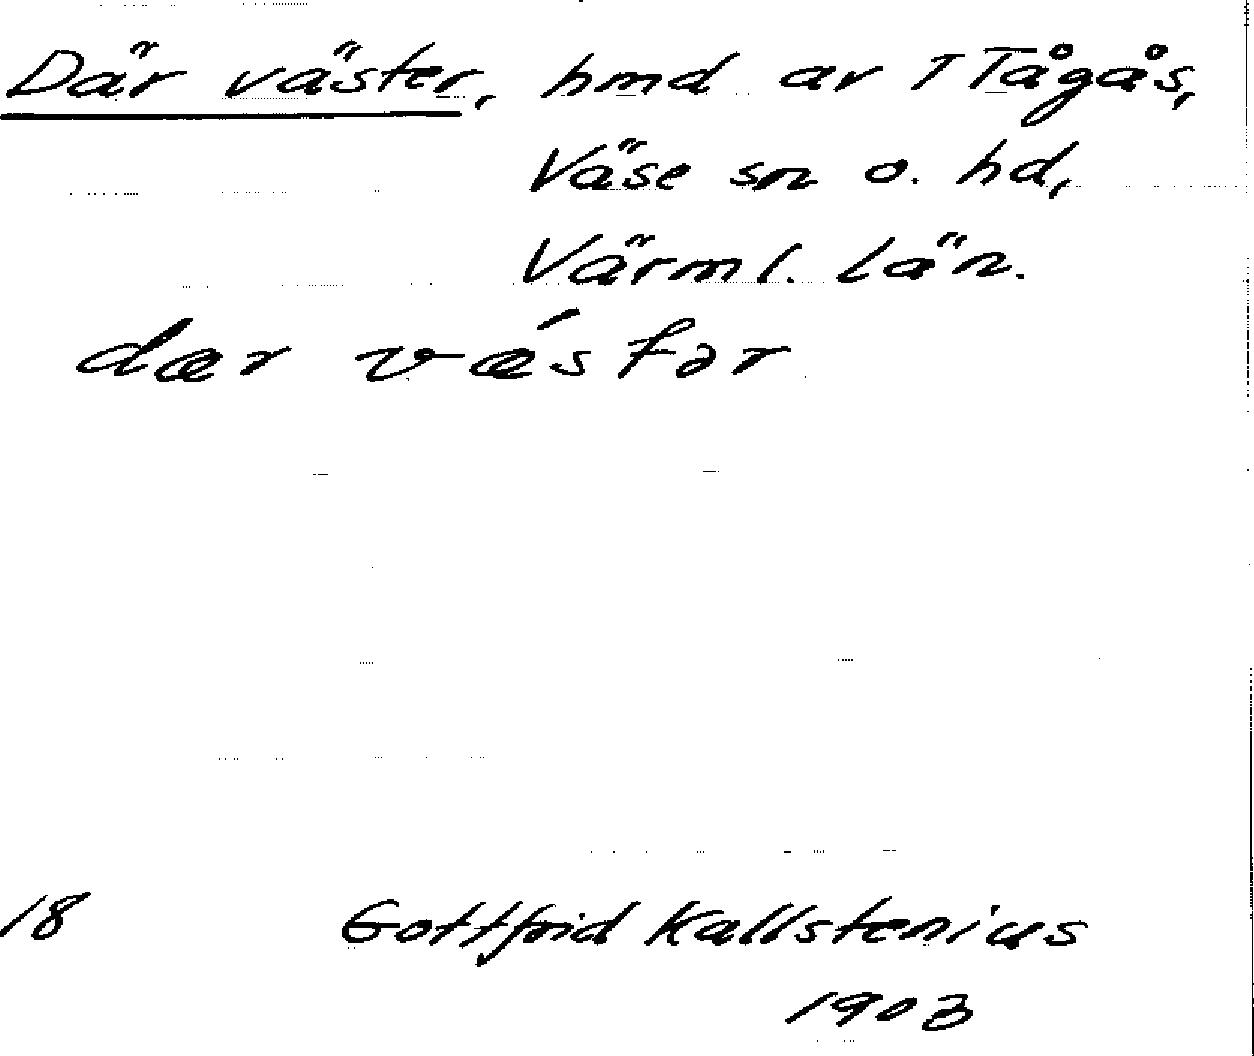 Där väster, hmd av 1 Tågås,
Väse sn o. hd,
Värml. län.
dær vǽstər
18 Gottfrid Kallstenius
1903